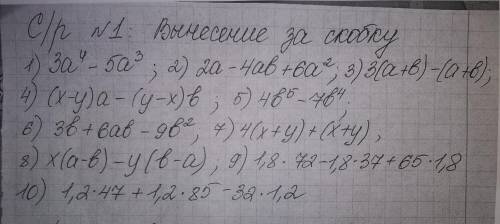 С/р №1: Вынесение за скобку
1) 3a⁴ - 5a³ ; 2) 2a - 4ab + 6a² ; 3) 3(a+b) - (a+b);
4) (x-y)a - (y-x)b ; 5) 4b⁵ - 7b⁴ ;
6) 3b + 6ab - 9b² , 7) 4(x+y) + (x+y) ,
8) x(a-b) - y(b-a) , 9) 1,8 · 72 - 1,8 · 37 + 65 · 1,8
10) 1,2 · 47 + 1,2 · 85 - 32 · 1,2